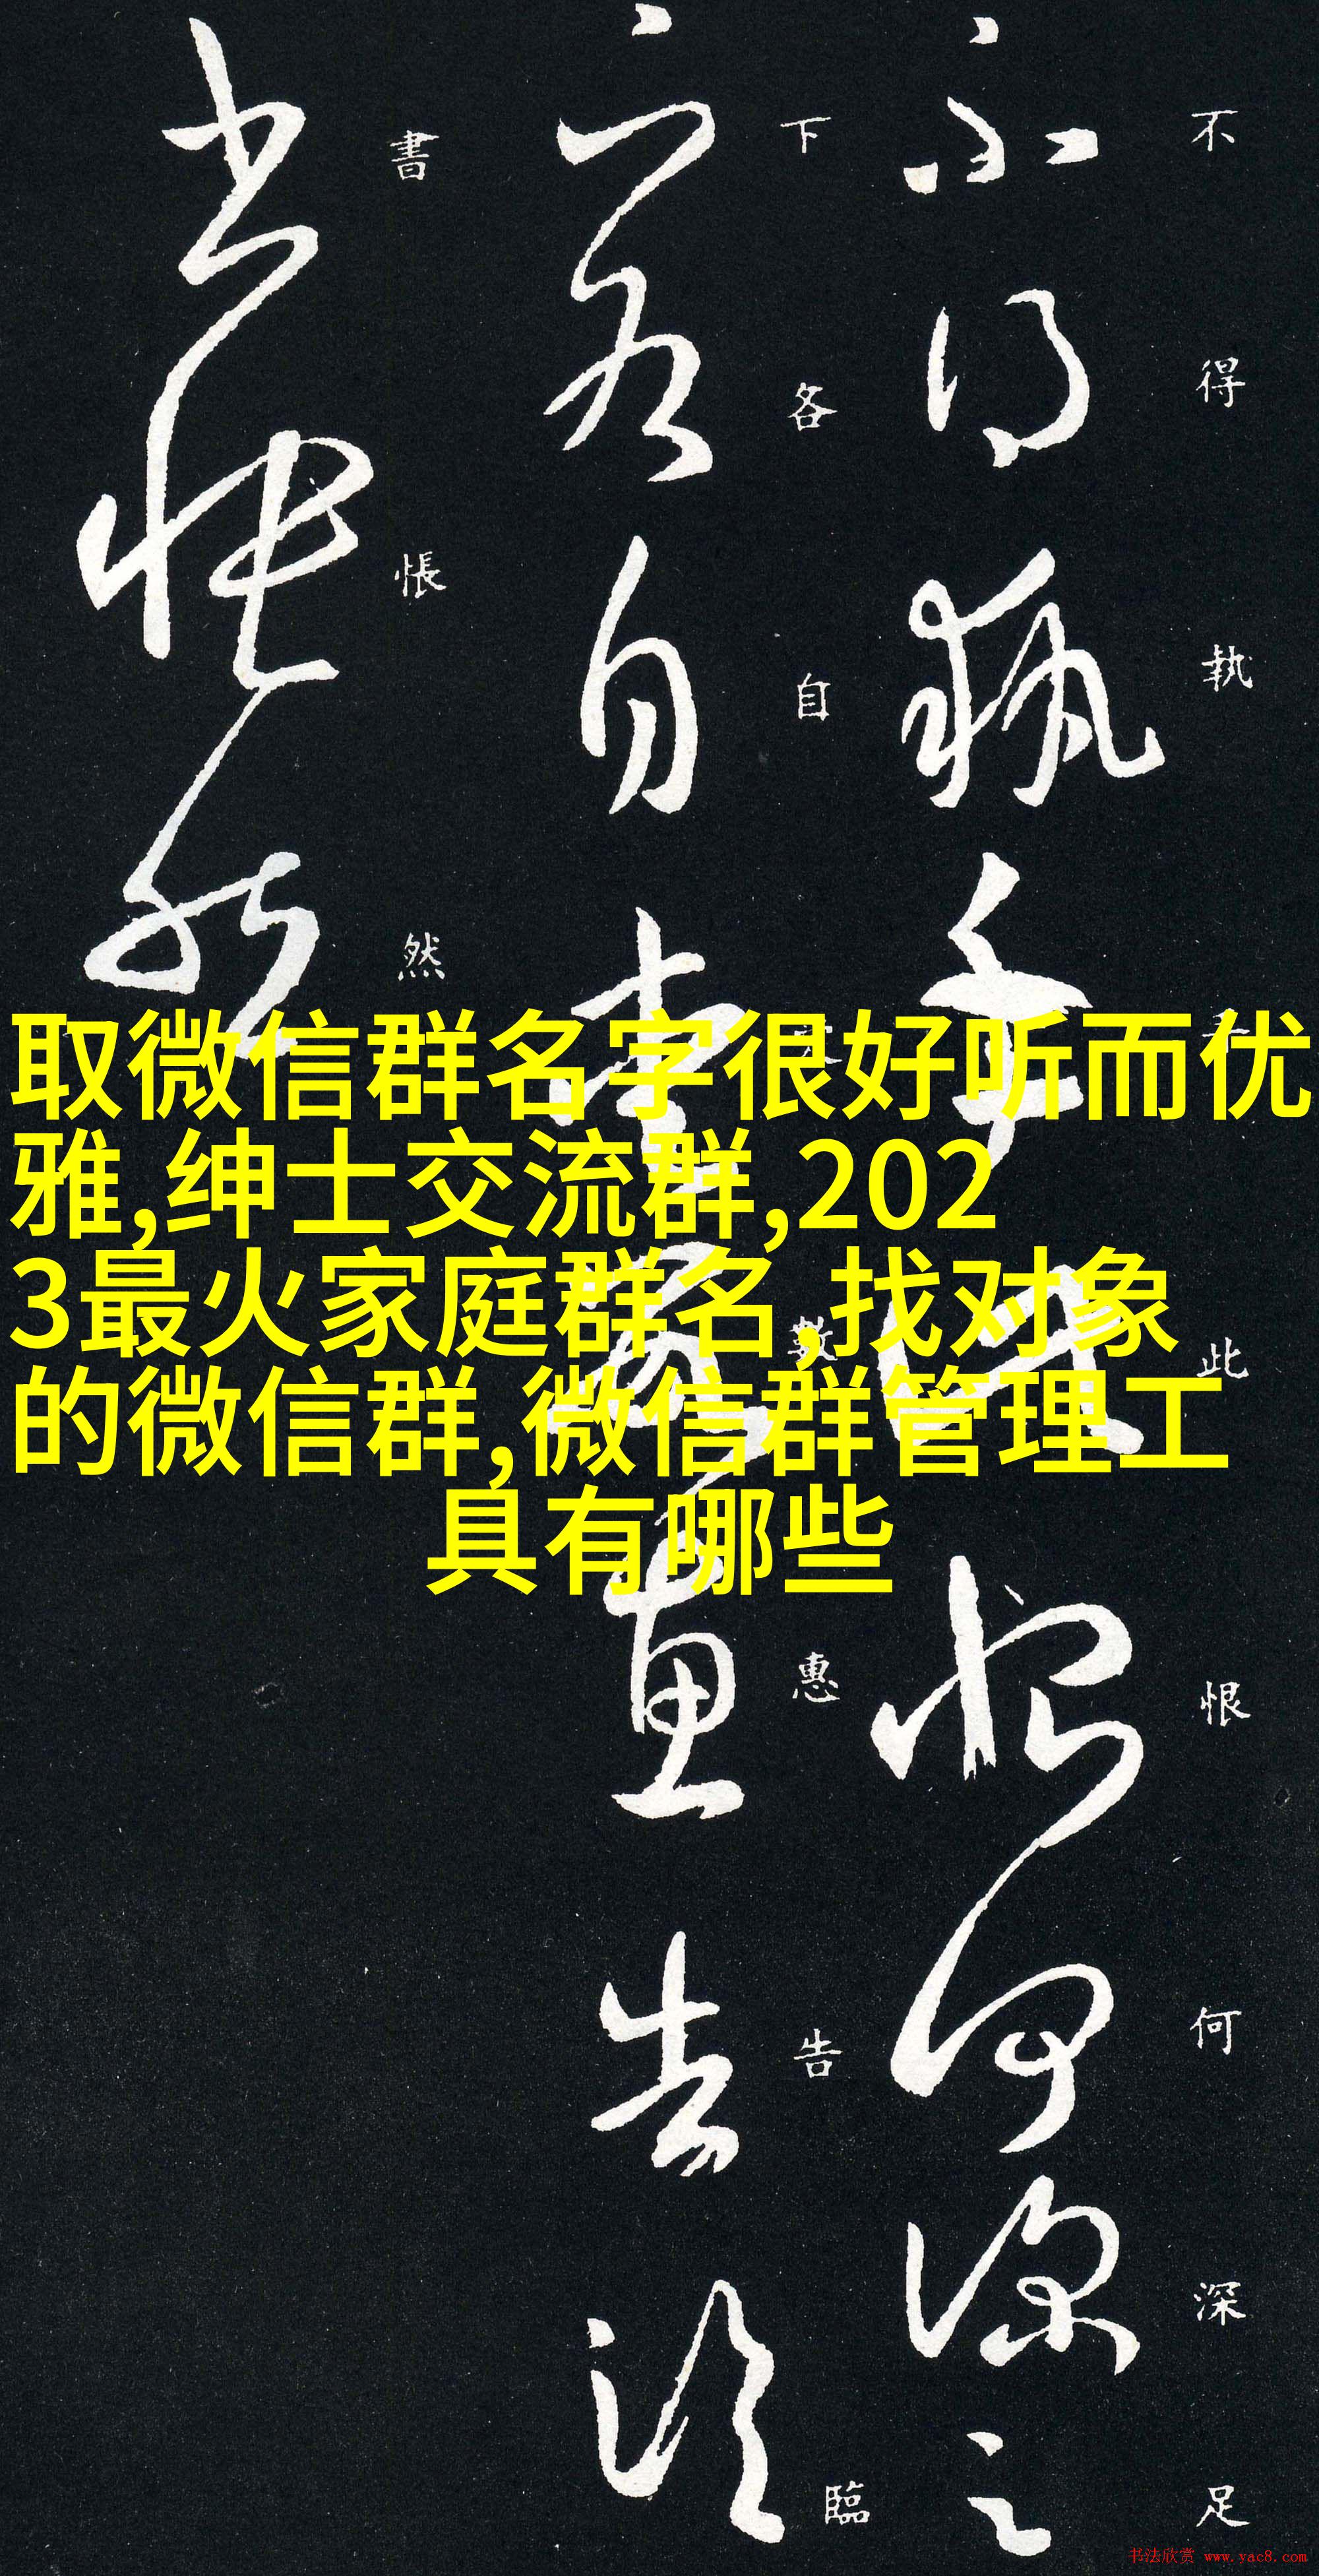 不得執手此恨何深足
下各自愛數惠告臨
書悵然
取微信群名字很好听而优
雅,绅士交流群,202
3最火家庭群名,找对象
的微信群,微信群管理工
具有哪些
书法欣赏 www.yac8.com